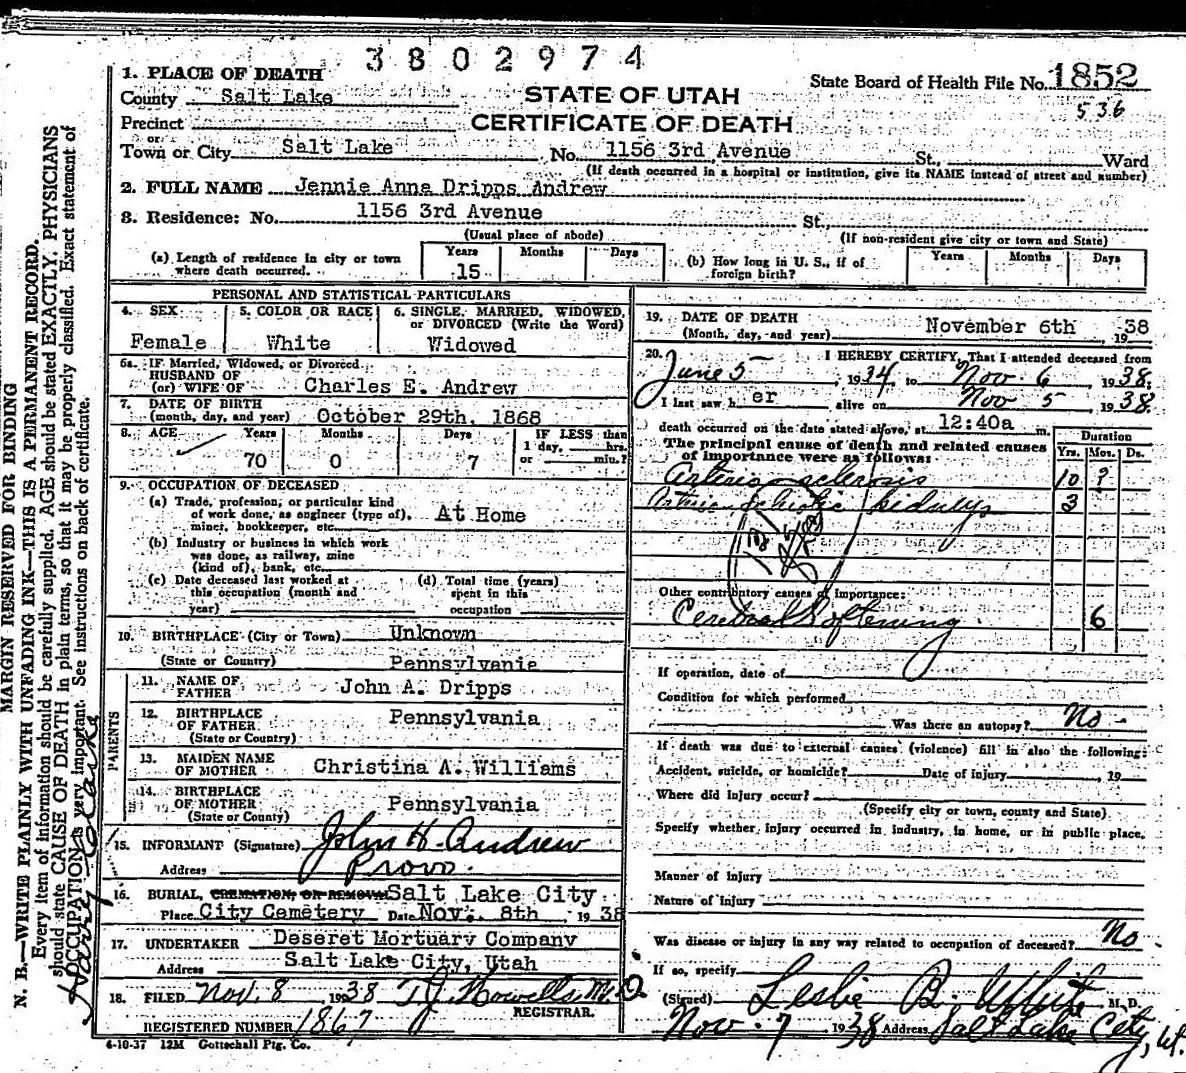 3802974
1. PLACE OF DEATH
State Board of Health File No. 1852
County Salt Lake
STATE OF UTAH
536
Precinct
CERTIFICATE OF DEATH
or
Town or City Salt Lake No. 1156 3rd Avenue St., Ward
(If death occurred in a hospital or institution, give its NAME instead of street and number)
2. FULL NAME Jennie Anna Dripps Andrew
3. Residence: No. 1156 3rd Avenue St.,
(Usual place of abode) (If non-resident give city or town and State)
(a) Length of residence in city or town where death occurred. Years 15 Months Days
(b) How long in U. S., if of foreign birth? Years Months Days
PERSONAL AND STATISTICAL PARTICULARS
4. SEX Female
5. COLOR OR RACE White
6. SINGLE, MARRIED, WIDOWED, or DIVORCED (Write the Word) Widowed
6a. IF Married, Widowed, or Divorced
HUSBAND OF
(or) WIFE OF Charles E. Andrew
7. DATE OF BIRTH
(month, day, and year) October 29th, 1868
8. AGE Years 70 Months 0 Days 7 IF LESS than 1 day, hrs. or min.?
9. OCCUPATION OF DECEASED
(a) Trade, profession, or particular kind
of work done, as engineer (type of), At Home
miner, bookkeeper, etc.
(b) Industry or business in which work
was done, as railway, mine
(kind of), bank, etc.
(c) Date deceased last worked at this occupation (month and year)
(d) Total time (years) spent in this occupation
10. BIRTHPLACE (City or Town) Unknown
(State or Country) Pennsylvania
PARENTS
11. NAME OF FATHER John A. Dripps
12. BIRTHPLACE OF FATHER Pennsylvania
(State or Country)
13. MAIDEN NAME OF MOTHER Christina A. Williams
14. BIRTHPLACE OF MOTHER Pennsylvania
(State or County)
15. INFORMANT (Signature) John H. Andrew
Address Provo.
16. BURIAL, CREMATION, OR REMOVAL Salt Lake City
Place City Cemetery Date Nov. 8th, 1938
17. UNDERTAKER Deseret Mortuary Company
Address Salt Lake City, Utah
18. FILED Nov. 8, 1938 T J Howells, M.D.
REGISTRAR.
REGISTERED NUMBER 1867
4-10-37 12M Gottschall Ptg. Co.
19. DATE OF DEATH
(Month, day, and year) November 6th 1938
20. I HEREBY CERTIFY, That I attended deceased from
June 5, 1934, to Nov. 6, 1938.
I last saw her alive on Nov 5 1938.
death occurred on the date stated above, at 12:40a m.
The principal cause of death and related causes
of importance were as follows:
Duration
Yrs. Mos. Ds.
Arterio sclerosis 10 ?
kidneys 3
131
Other contributory causes of importance:
Cerebral Softening 6
If operation, date of
Condition for which performed
Was there an autopsy? No
If death was due to external causes (violence) fill in also the following:
Accident, suicide, or homicide? Date of injury, 19
Where did injury occur?
(Specify city or town, county and State)
Specify whether injury occurred in industry, in home, or in public place.
Manner of injury
Nature of injury
Was disease or injury in any way related to occupation of deceased? No
If so, specify
(Signed) Leslie B. White M. D.
Nov. 7 1938 Address Salt Lake City, Ut.
MARGIN RESERVED FOR BINDING
N. B.—WRITE PLAINLY WITH UNFADING INK—THIS IS A PERMANENT RECORD.
Every item of information should be carefully supplied. AGE should be stated EXACTLY. PHYSICIANS
should state CAUSE OF DEATH in plain terms, so that it may be properly classified. Exact statement of
OCCUPATION is very important. See instructions on back of certificate.